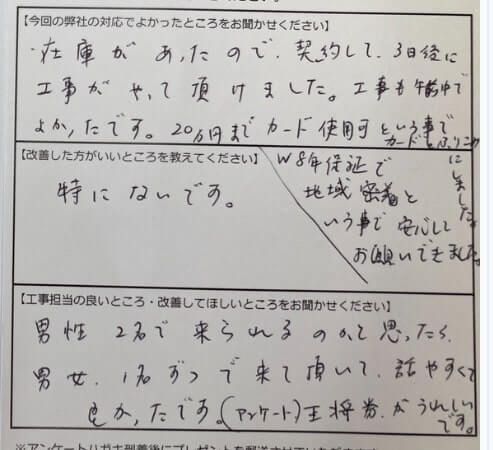 【今回の弊社の対応でよかったところをお聞かせください】
・在庫があったので、契約して、3日後に
工事がやって頂けました。工事も午前中で
よかったです。20万円までカード使用可という事で
カードとふりこみ
にしました。
【改善した方がいいところを教えてください】
特にないです。
W8年保証で
地域密着と
いう事で安心して
お願いできました。
【工事担当の良いところ・改善してほしいところをお聞かせください】
男性2名で来られるのかと思ったら
男女、1名ずつで来て頂いて、話やすくて
良かったです。(アンケート)王将券がうれしい
です。